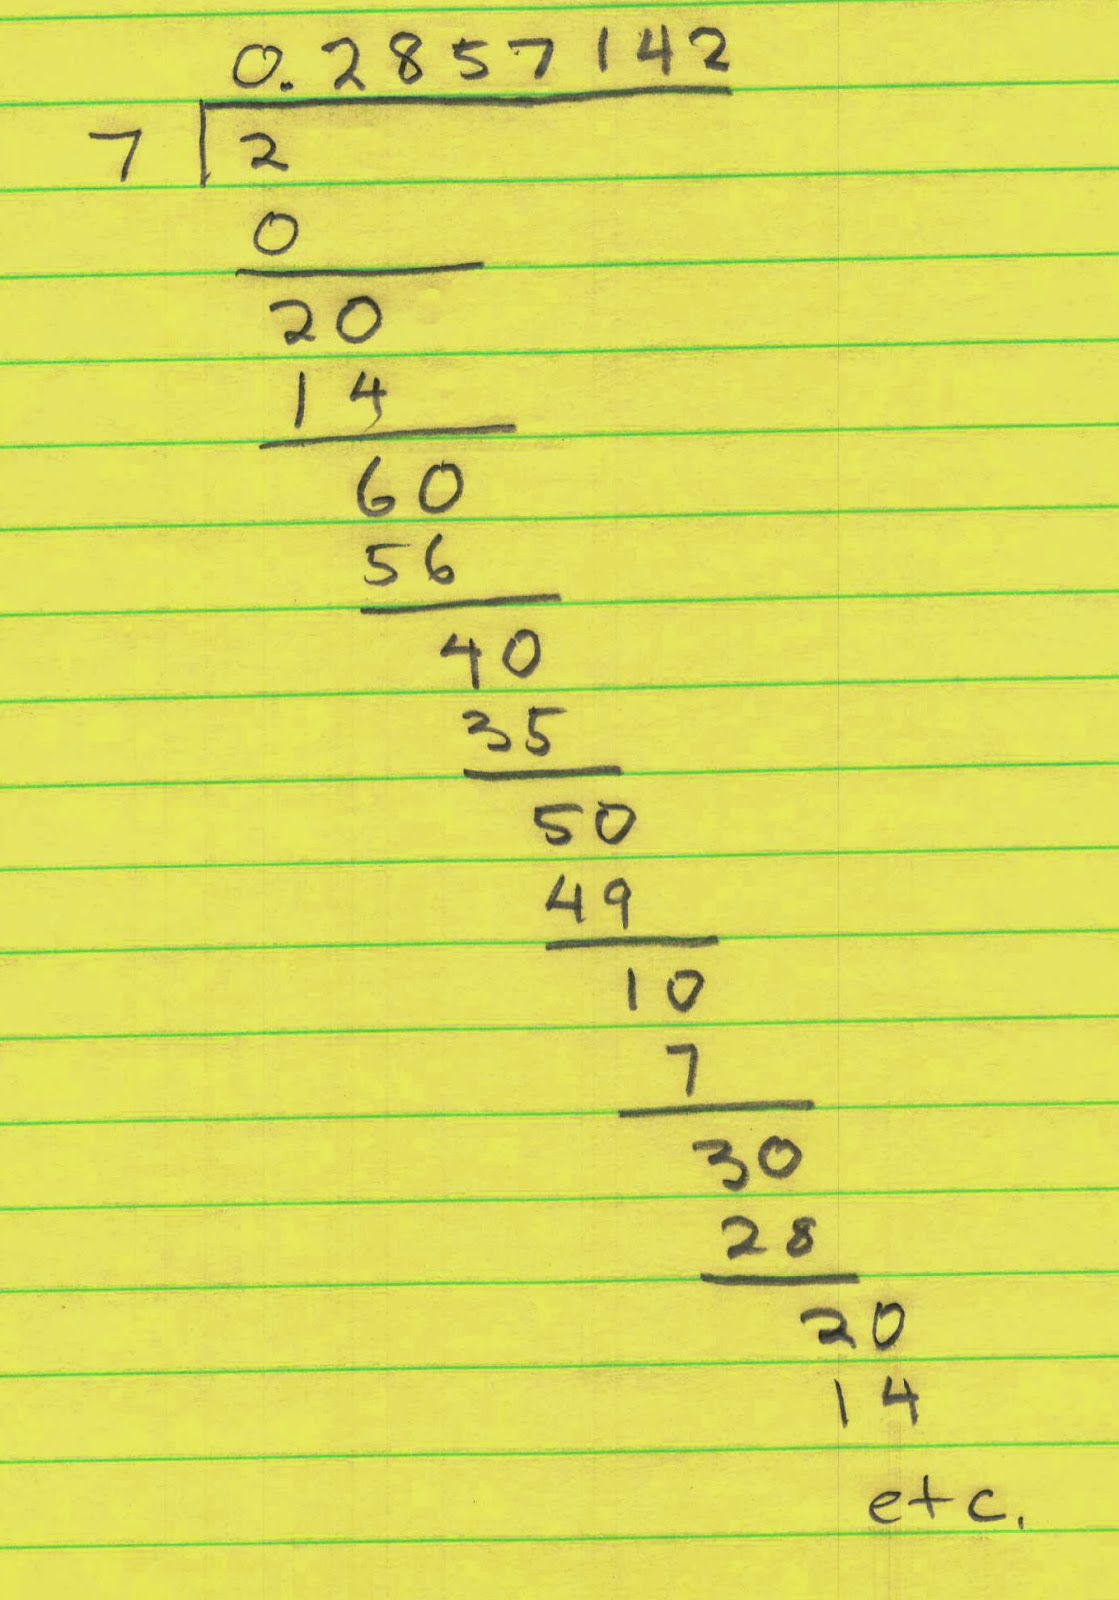 0.2857142
7 2
0
20
14
60
56
40
35
50
49
10
7
30
28
20
14
etc.